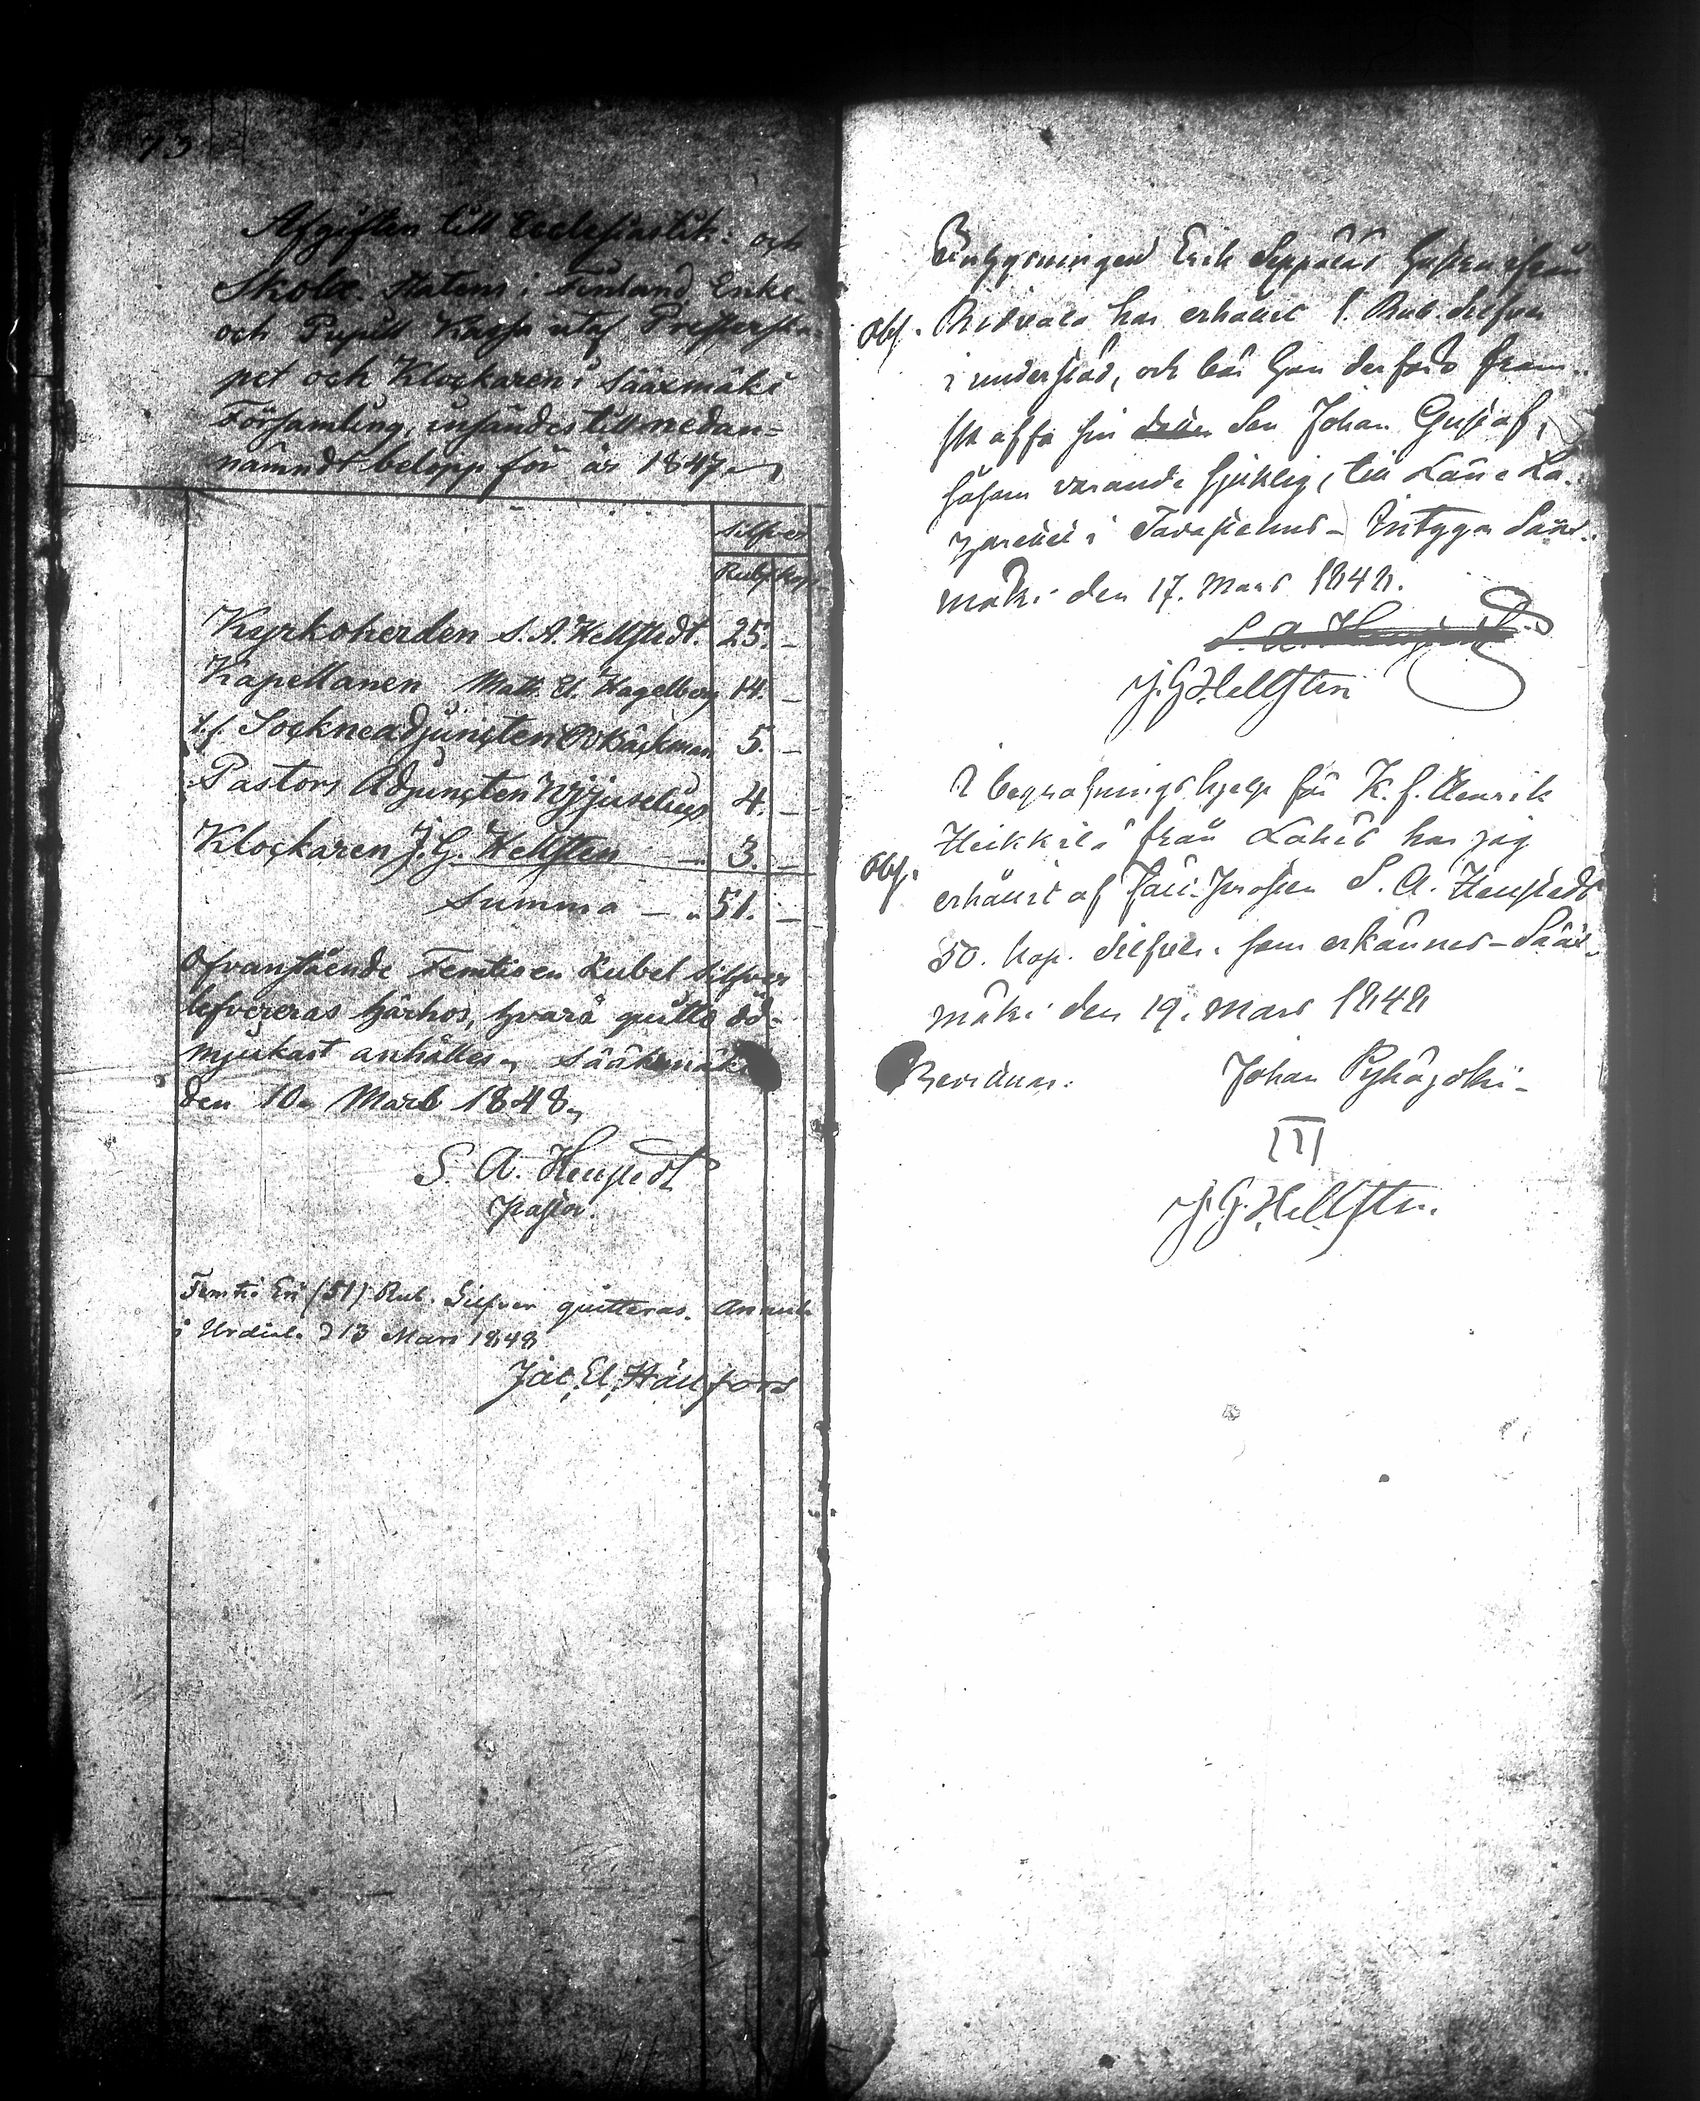 73
Afgiften till Ecclesiastik: och
Skole Staten i Finland Enke-
och Pupill Kassa utaf Presterska-
pet och Klockaren i Sääxmäki
Församling, insändes till nedan=
nämndt belopp för år 1847.
Silfver
Rub. Kop.
Kyrkoherden S. A. Hellstedt. 25. –
Kapellanen Matt. El. Hagelberg 14. –
t.f. Sockneadjuncten Bäckman 5. –
Pastors Adjuncten Juselius 4. –
Klockaren J. G. Hellsten — 3. –
Summa — 51. –
Ofvanstående Femtioen Rubel Silfver
lefvereras härhos, hvarå quitto öd-
mjukast anhålles, Sääksmäki
den 10. Mars 1848,
S. A. Hellstedt
Pastor.
Femtio En (51) Rub. Silfver quitteras.
i Urdiala d 13 Mars 1848
Jac. El. Hällfors
Erik Seppälä från
Obs. Ridvala har erhållit 1. Rub. Silfver
i understöd, och bör han derförd fram-
skaffa sin Son Johan Gustaf,
såsom varande sjuklig, till Läne La-
zarettet i Tavastehus – Intygar Sääx-
mäki den 17. Mars 1848.
J. G. Hellsten
I begrafningshjelp för K. f. Henrik
Heikkilä från Lahis har jag
Obs. erhållit af Prosten S. A. Hellstedt
50. Kop. Silfver, som erkännes – Sääx-
mäki den 19. Mars 1848
Johan Pyhäjoki –
J. G. Hellsten.